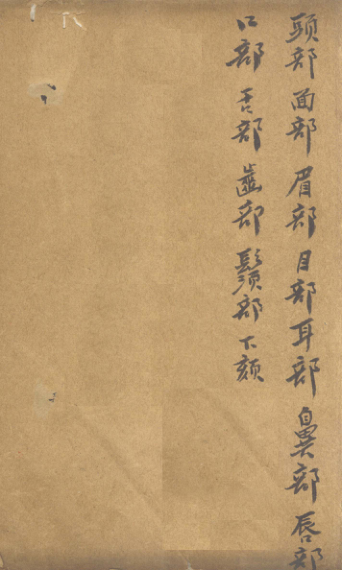 頭部 面部 眉部 目部 耳部 鼻部 唇部
口部 舌部 齒部 鬚部 下頦